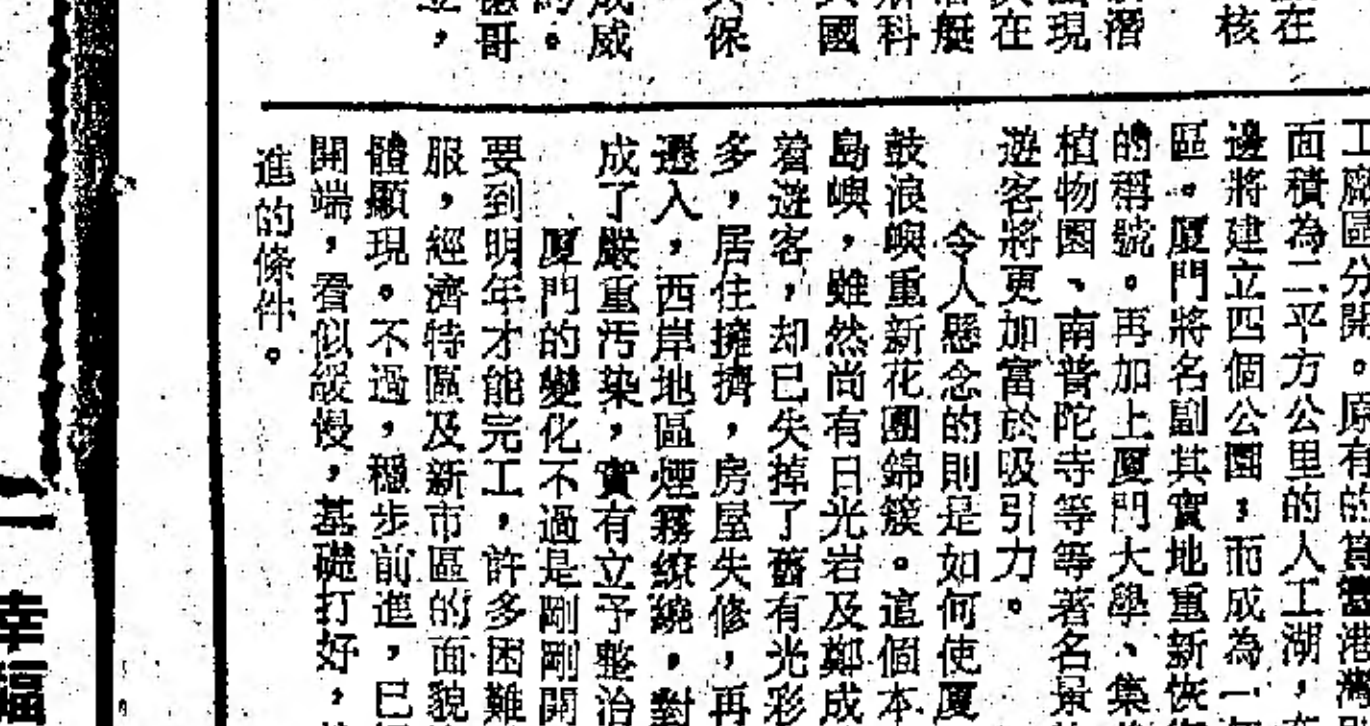 在
核
潛
現
在
艇
科
國
保
成威
哥
，
工廠區分開。原有的篔簹港灣
面積為二平方公里的人工湖，
邊將建立四個公園，而成為一
區。廈門將名副其實地重新恢
的稱號。再加上廈門大學、集
植物園、南普陀寺等等著名景
遊客將更加富於吸引力。
令人懸念的則是如何使廈
鼓浪嶼重新花團錦簇。這個本
島嶼，雖然尚有日光岩及鄭成
着遊客，却已失掉了舊有光彩
多，居住擁擠，房屋失修，再
遷入，西岸地區煙霧繚繞，對
成了嚴重汚染，實有立予整治
廈門的變化不過是剛剛開
要到明年才能完工，許多困難
服，經濟特區及新市區的面貌
體顯現。不過，穩步前進，已
開端，看似緩慢，基礎打好，
進的條件。
幸福